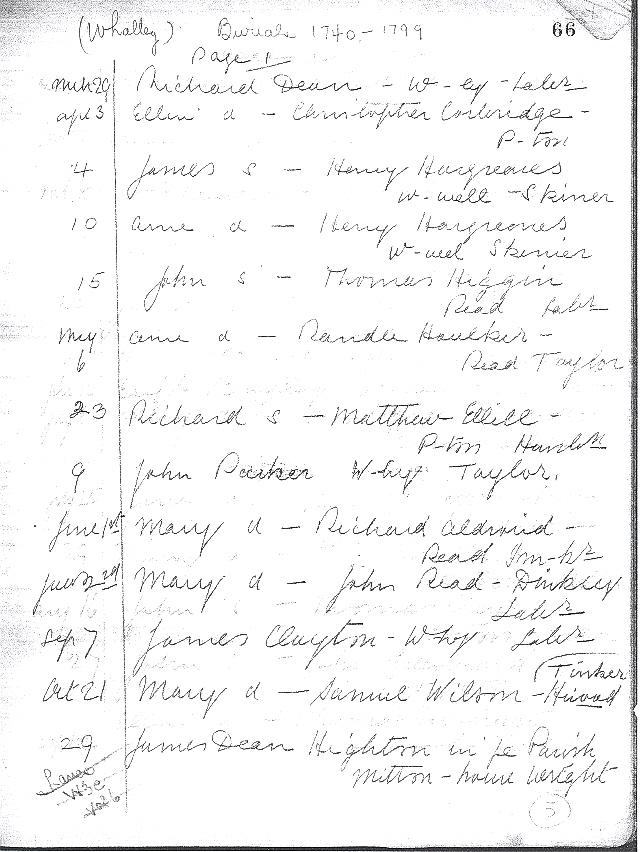 (Whalley) Burials 1740-1799 66
Page 1
Mch 29 Richard Dean - W-ey - Labr
apl 3 Ellin d - Christopher Corbridge -
P-ton
4 James s - Henry Hargreaves
W-well - Skiner
10 ame d - Henry Hargreaves
W-wel Skenier
15 John s - Thomas Higgin
Read Labr
May 6 ame d - Randle Houlker -
Read Taylor
23 Richard s - Matthew Ellill -
P-ton
9 John Parker W-ley Taylor.
June 1st Mary d - Richard Aldroid -
Read Inn-kr
22nd Mary d - John Read - Dinkley
Labr
Sep 7 James Clayton - Whey Labr
(Tinker
Oct 21 Mary d - Samuel Wilson -
29 James Dean Highton in ye Parish
Mitton - house Wright
5